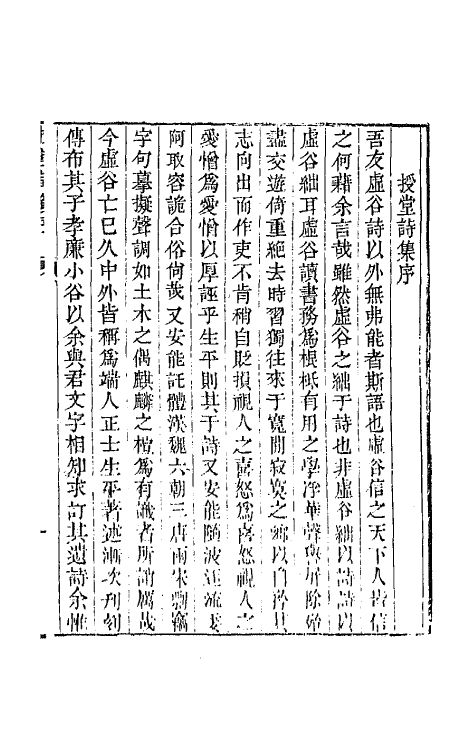 授堂詩集序
吾友虛谷詩以外無弗能者斯語也虛谷信之天下人皆信
之何藉余言哉雖然虛谷之絀于詩也非虛谷絀以詩詩以
虛谷絀耳虛谷讀書務為根柢有用之學浮華聲與屏除殆
盡交遊倚重絕去時習獨往來于寬閒寂寞之鄉以自矜其
志向出而作吏不肯稍自貶損視人之喜怒為喜怒視人之
愛憎為愛憎以厚誣乎生平則其于詩又安能隨波汪流
阿取容詭合俗尚哉又安能託體漢魏六朝三唐兩宋剽竊
字句摹擬聲調如土木之偶麒麟之楦為有識者所謂厲哉
今虛谷亡已久中外皆稱為端人正士生平著述漸次刊刻
傳布其子孝廉小谷以余與君文字相知求訂其遺詩余惟